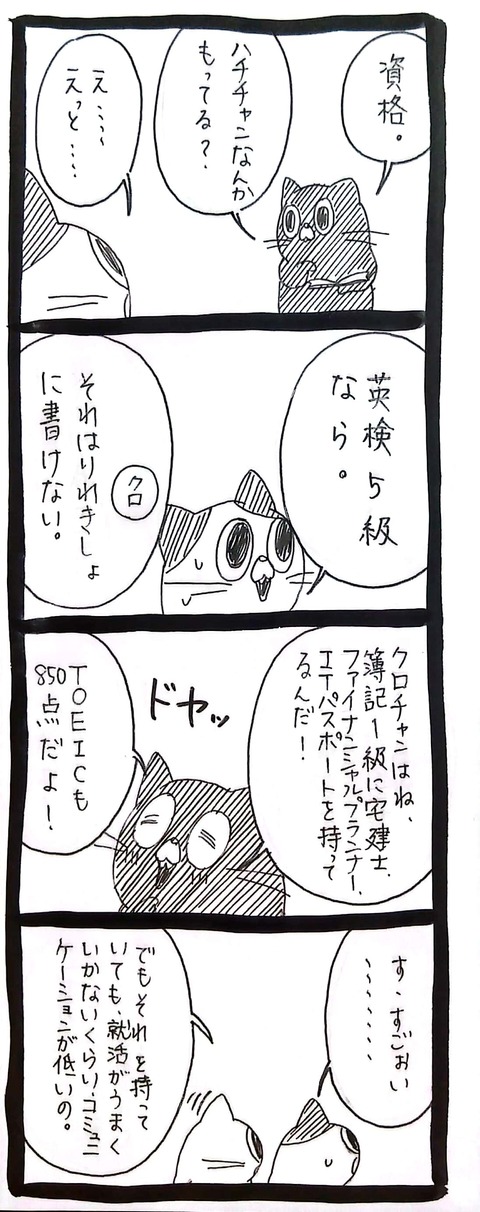 資格。
ハチチャンなんか
もってる？
え、、、、
えっと、、、、
英検5級
なら。
クロ
それはりれきしょ
に書けない。
クロチャンはね、
簿記1級に宅建士、
ファイナンシャルプランナー、
ITパスポートを持って
るんだ！
ドヤッ
TOEICも
850点だよ！
す、すごぉい
、、、、、、、
でもそれを持って
いても、就活がうまく
いかないくらい、コミュニ
ケーションが低いの。